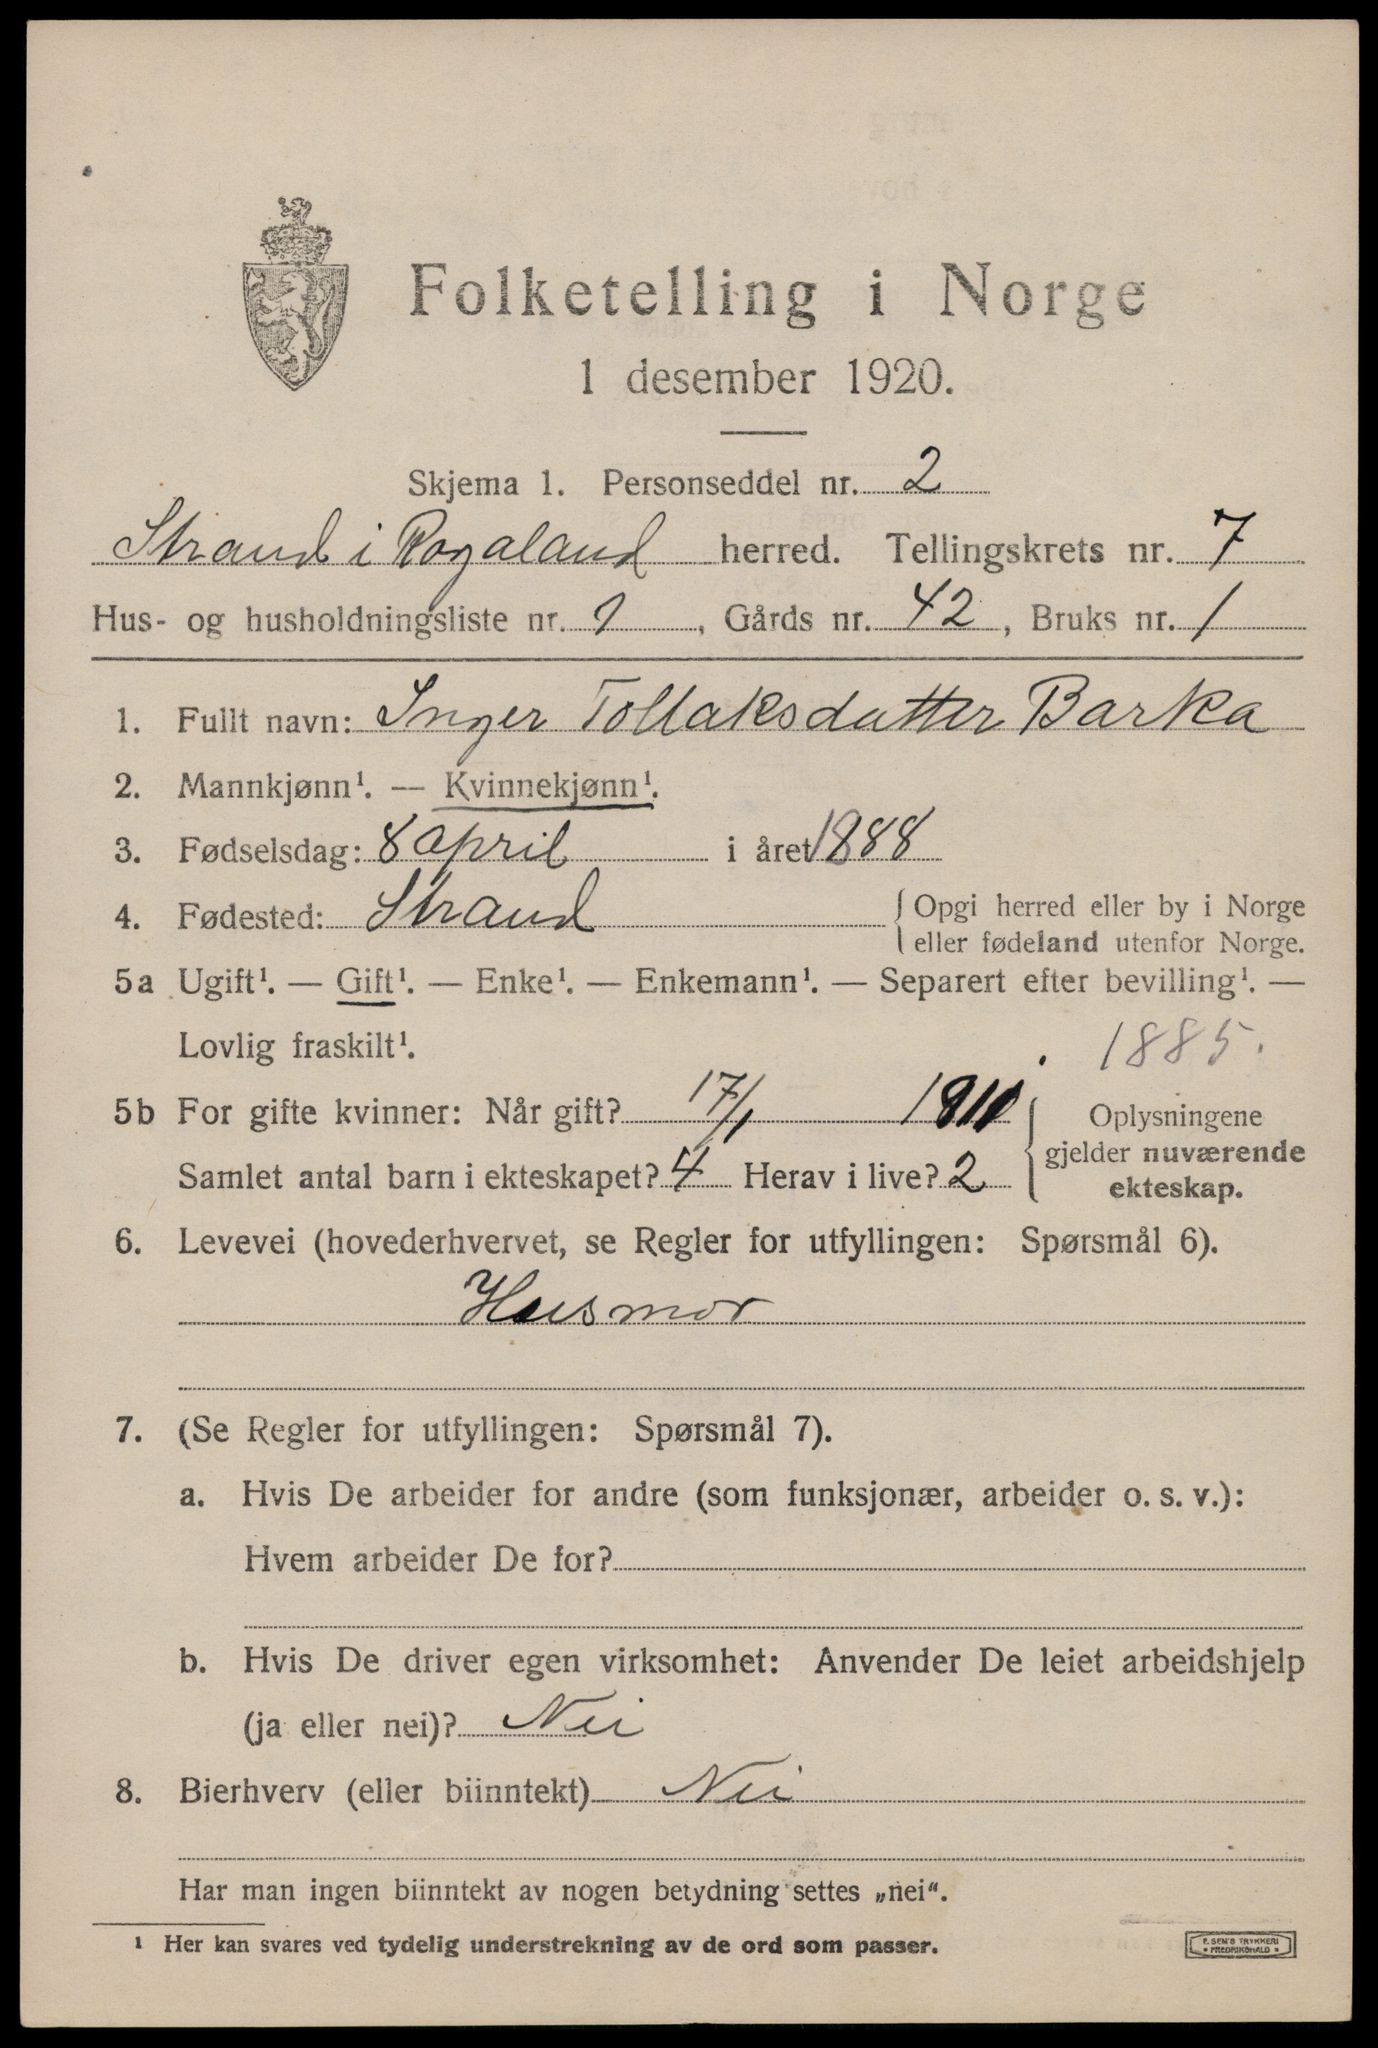 Folketelling i Norge
1 desember 1920.
Skjema 1. Personseddel nr. 2
Strand i Rogaland herred. Tellingskrets nr. 7
Hus- og husholdningsliste nr. 1, Gårds nr. 42, Bruks nr. 1
1. Fullt navn: Inger Tollaksdatter Barka
2. Mannkjønn¹. — Kvinnekjønn¹.
3. Fødselsdag: 8 april i året 1888
4. Fødested: Strand { Opgi herred eller by i Norge
eller fødeland utenfor Norge.
5a Ugift¹. — Gift¹. — Enke¹. — Enkemann¹. — Separert efter bevilling¹. —
Lovlig fraskilt¹. 1885.
5b For gifte kvinner: Når gift? 17/1
Samlet antal barn i ekteskapet? 4 Herav i live? 2
{ Oplysningene
gjelder nuværende
ekteskap.
6. Levevei (hovederhvervet, se Regler for utfyllingen: Spørsmål 6).
Husmor
7. (Se Regler for utfyllingen: Spørsmål 7).
a. Hvis De arbeider for andre (som funksjonær, arbeider o. s. v.):
Hvem arbeider De for?
b. Hvis De driver egen virksomhet: Anvender De leiet arbeidshjelp
(ja eller nei)? Nei
8. Bierhverv (eller biinntekt) Nei
Har man ingen biinntekt av nogen betydning settes „nei“.
¹ Her kan svares ved tydelig understrekning av de ord som passer.
E. SEM'S TRYKKERI
FREDRIKSHALD